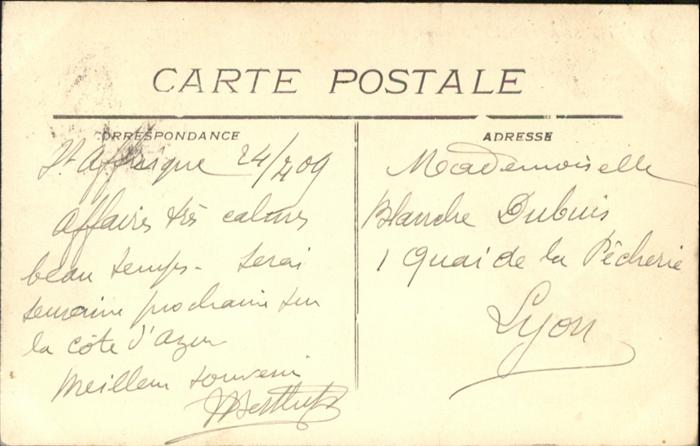 CARTE POSTALE
CORRESPONDANCE
St Affrique 24/4 09
Affaires très calmes
beau temps - Serai
semaine prochaine sur
la côte d'azur
Meilleur souvenir
ADRESSE
Mademoiselle
Blanche Dubuis
1 Quai de la Pêcherie
Lyon